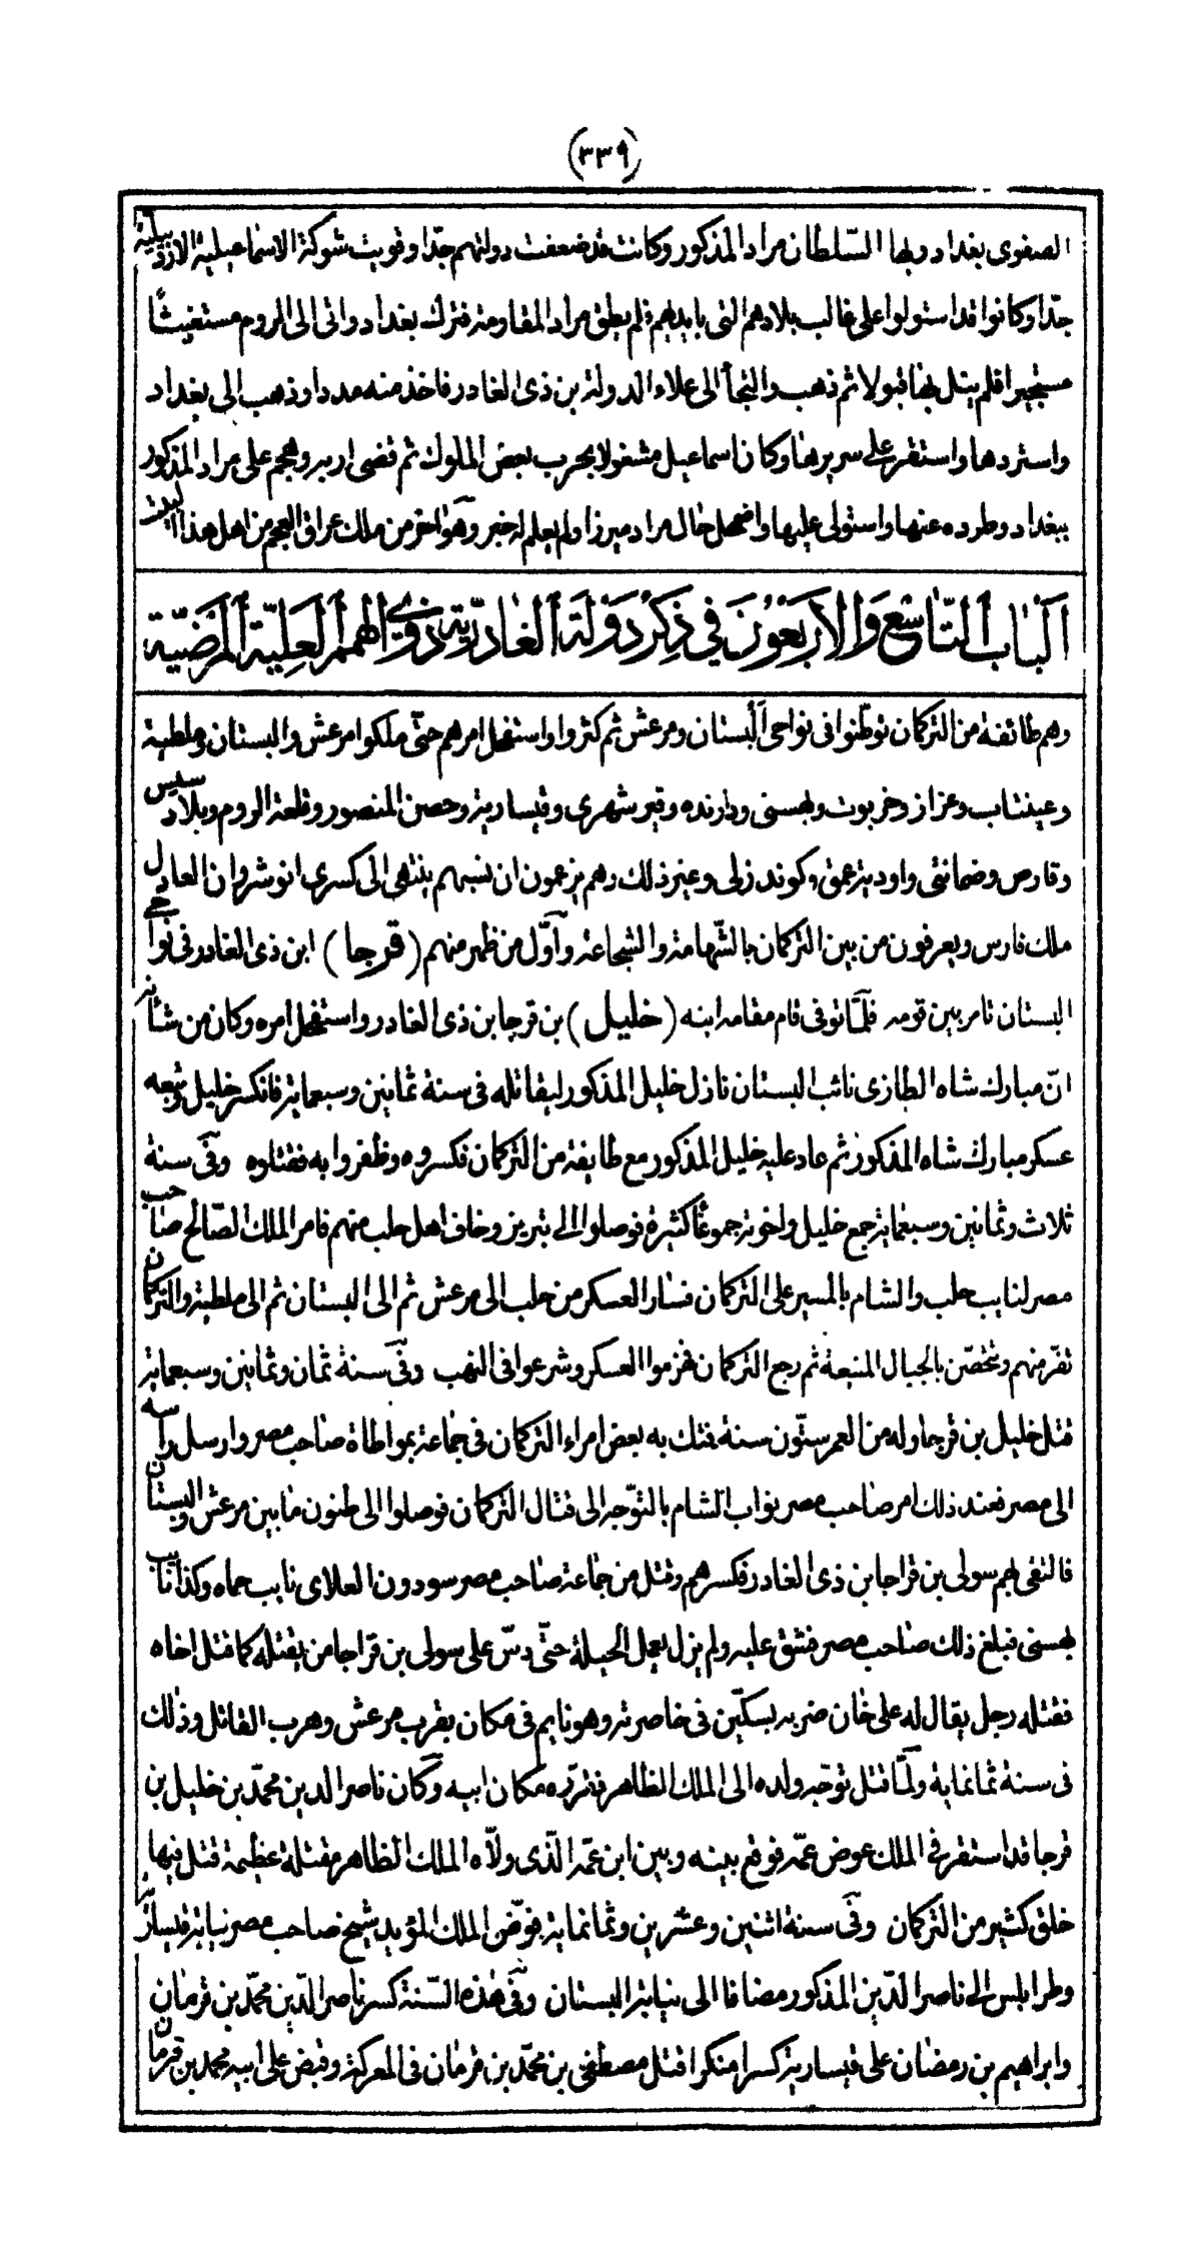 (٣٣٩)
الصفوى بغداد وبها السّلطان مراد المذكور وكانت قد ضعفت دولتهم جدّا وقويت شوكة الاسماعيلية الاردبيلية
جدّا وكانوا قد استولوا على غالب بلادهم التى بايديهم فلم يطق مراد المقاومة فترك بغداد واتى الى الروم مستغيثاً
مستجيرا فلم ينل بها قبولا ثم ذهب والتجأ الى علاء الدولة بن ذى الغادر فاخذ منه مددا وذهب الى بغداد
واستردها واستقر على سريرها وكان اسماعيل مشغولا بحرب بعض الملوك ثم قضى اربه وهجم على مراد المذكور
ببغداد وطرده عنها واستولى عليها واضمحل حال مراد ميرزا ولم يعلم له خبر وهو اخر من ملك عراق العجم من اهل هذا البيت
اَلْبٰابُ التّٰاسِعُ وَالْاَرْبَعُوْنَ فِي ذِكْرِ دَوْلَةِ الْغٰادِرِيّةِ ذَوِي الْهِمَمِ الْعَلِيّةِ الْمَرْضِيّةِ
وهم طائفة من التركمان توطّنوا فى نواحى اَلْبستان ومرعش ثم كثروا واستفحل امرهم حتّى ملكوا مرعش والبستان وملطية
وعينتاب وعزاز وخربوت وبهسنى ودارنده وقير شهرى وقيسارية وحصن المنصور وقلعة الروم وبلاد سيس
وقارص وضمانتى واوديتر عمق وكوندزلى وغير ذلك وهم يزعمون ان نسبهم ينتهى الى كسرى انوشروان العادل
ملك فارس ويعرفون من بين التركمان بالشّهامة والشجاعة وآوّل من ظهر منهم (قرجا) ابن ذى الغادر فى نواحى
البستان تامر بين قومه فلمّا توفى قام مقامه ابنه (خليل) بن قرجا بن ذى الغادر واستفحل امره وكان من شانه
انّ مبارك شاه الطازى نائب البستان نازل خليل المذكور ليقاتله فى سنة ثمانين وسبعماية فانكسر خليل وتبعه
عسكر مبارك شاه المذكور ثم عاد عليه خليل المذكور مع طايفة من التركمان فكسروه وظفروا به فقتلوه وفى سنة
ثلاث وثمانين وسبعماية جمع خليل واخوته جموعًا كثيرة فوصلوا الى تبريز وخاف اهل حلب منهم فامر الملك الصّالح صاحب
مصر لنايب حلب والشام بالمسير على التركمان فسار العسكر من حلب الى مرعش ثم الى البستان ثم الى ملطية والتركمان
تفرّ منهم وتتحصّن بالجبال المنيعة ثم رجع التركمان فهزموا العسكر وشرعوا فى النهب وفى سنة ثمان وثمانين وسبعماية
قتل خليل بن قرجا وله من العمر ستّون سنة فتك به بعض امراء التركمان فى جماعة بمواطاة صاحب مصر وارسل راسه
الى مصر فعند ذلك امر صاحب مصر نواب الشام بالتوّجه الى قتال التركمان فوصلوا الى طنون ما بين مرعش والبستان
فالتقى لهم سولى بن قراجا بن ذى الغادر فكسرهم وقتل من جماعة صاحب مصر سودون العلاى نايب حماه وكذا نايب
بهسنى فبلغ ذلك صاحب مصر فشق عليه ولم يزل يعمل الحيلة حتّى دسّ على سولى بن قراجا من يقتله كما قتل اخاه
فقتله رجل يقال له على خان ضربه بسكّين فى خاصرته وهو نايم فى مكان بقرب مرعش وهرب القاتل وذلك
فى سنة ثمانماية ولمّا قتل توجّه ولده الى الملك الظاهر فقرّره مكان ابيه وكان ناصر الدين محمّد بن خليل بن
قرجا قد استقر فى الملك عوض عمّه فوقع بينه وبين ابن عمّه الّذى ولاّه الملك الظاهر مقتلة عظيمة قتل فيها
خلق كثير من التركمان وفى سنة اثنين وعشرين وثمانماية فوّض الملك المؤيد شيخ صاحب مصر نيابة قيسارية
وطرابلس الى ناصر الدّين المذكور مضافا الى نيابة البستان وفى هذه السّنة كسر ناصر الدّين محمّد بن قرمان
وابراهيم بن رمضان على قيسارية كسرا منكرا قتل مصطفى بن محمّد بن قرمان فى المعركة وقبض على ابيه محمد بن قرمان